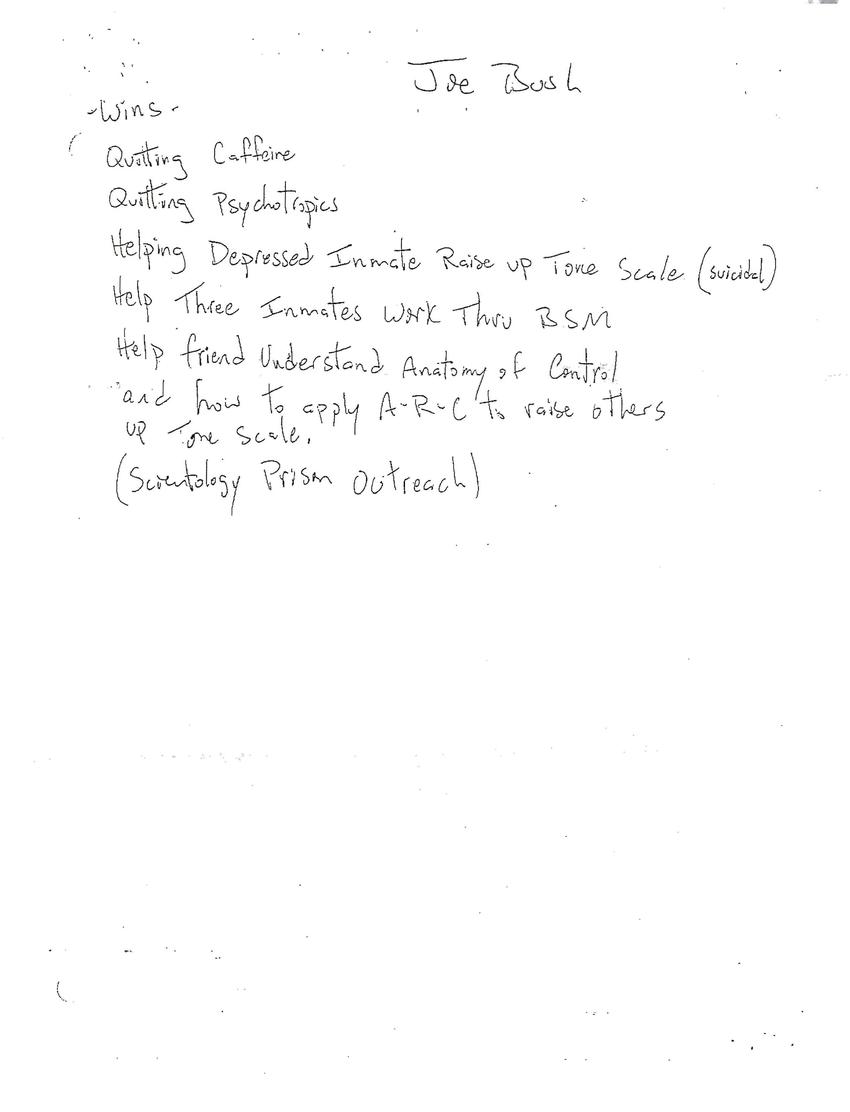 Joe Bush
-Wins-
Quitting Caffeine
Quitting Psychotropics
Helping Depressed Inmate Raise up Tone Scale (suicidal)
Help Three Inmates Work Thru BSM
Help friend Understand Anatomy of Control
and how to apply A-R-C to raise others
up Tone Scale.
(Scientology Prism Outreach)